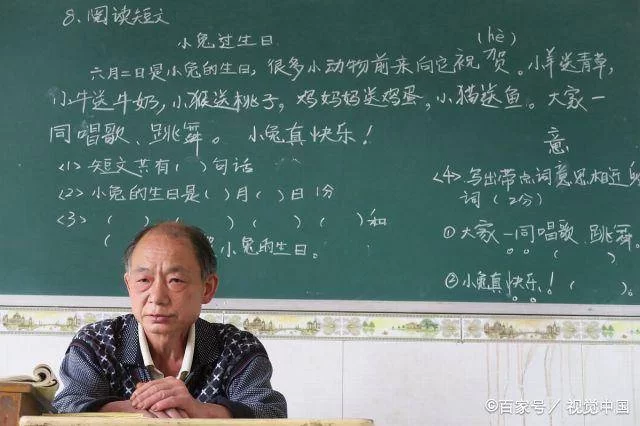 8、阅读短文
小兔过生日
(hè)
六月二日是小兔的生日,很多小动物前来向它祝贺。小羊送青草,
小牛送牛奶,小猴送桃子,鸡妈妈送鸡蛋,小猫送鱼。大家一
同唱歌、跳舞。小兔真快乐!
<1>短文共有( )句话
<2>小兔的生日是( )月( )日 1分
<3>( )( )( )( )( )和
( 小兔的生日。
意
<4>写出带点词意思相近的
词(2分)
①大家一同唱歌、跳舞。
( )
②小兔真快乐!( )。
©百家号/视觉中国